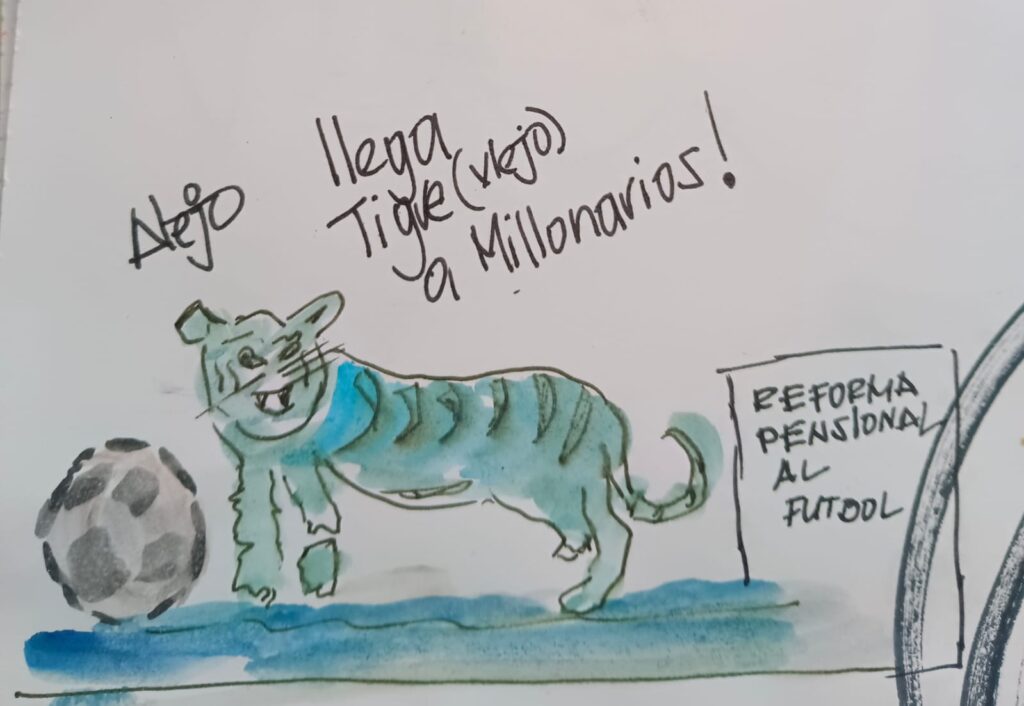 Alejo
llega
Tigre (viejo)
a Millonarios!
REFORMA
PENSIONAL
AL
FUTBOL